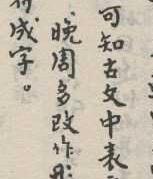 可知古文中表
晚周多改作
成字。